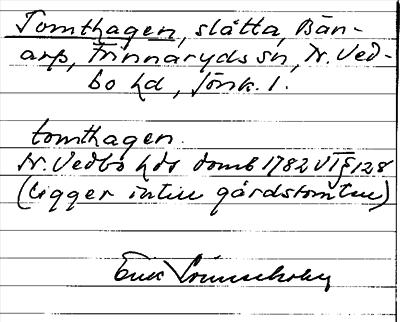 Tomthagen, slåtta, Bän-
arp, Frinnaryds sn, N. Ved-
bo hd, Jönk. l.
tomthagen.
N. Vedbo hds domb 1782 VI § 128
(ligger intill gårdstomten)
Erik